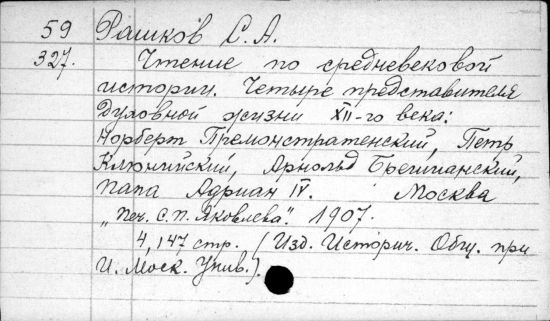 59 Рашков С. А.
327. Чтение по средневековой
истории. Четыре представителя
духовной жизни XII-го века:
Норберт Премонстратенский, Петр
Клюнийский, Арнольд Брешианский,
папа Адриан IV. Москва
„Печ. С. П. Яковлева". 1907.
4, 147 стр. (Изд. Историч. Общ. при
И. Моск. Унив.).